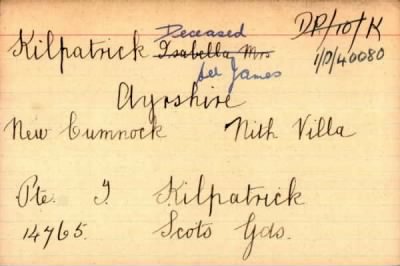 Deceased DP/10/K
Kilpatrick Isabella Mrs 1/D/40080
see James
Ayrshire
New Cumnock Nith Villa
Pte. J. Kilpatrick
14765. Scots Gds.